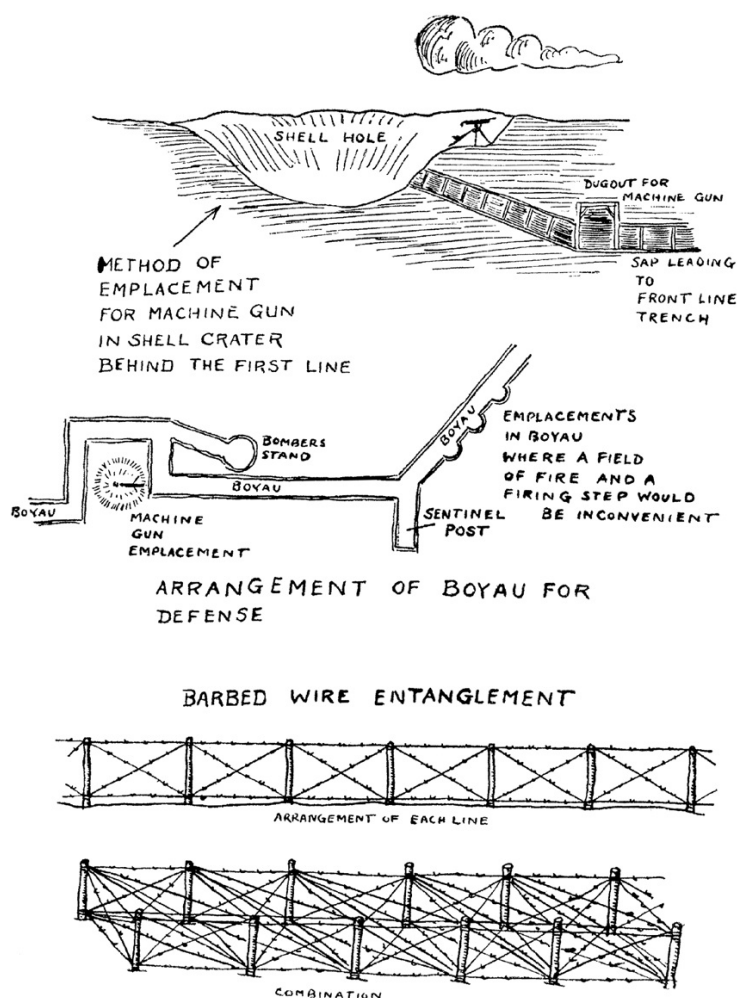 SHELL HOLE
DUGOUT FOR
MACHINE GUN
SAP LEADING
TO
FRONT LINE
TRENCH
METHOD OF
EMPLACEMENT
FOR MACHINE GUN
IN SHELL CRATER
BEHIND THE FIRST LINE
BOMBERS
STAND
BOYAU
BOYAU
BOYAU
MACHINE
GUN
EMPLACEMENT
SENTINEL
POST
EMPLACEMENTS
IN BOYAU
WHERE A FIELD
OF FIRE AND A
FIRING STEP WOULD
BE INCONVENIENT
ARRANGEMENT OF BOYAU FOR
DEFENSE
BARBED WIRE ENTANGLEMENT
ARRANGEMENT OF EACH LINE
COMBINATION